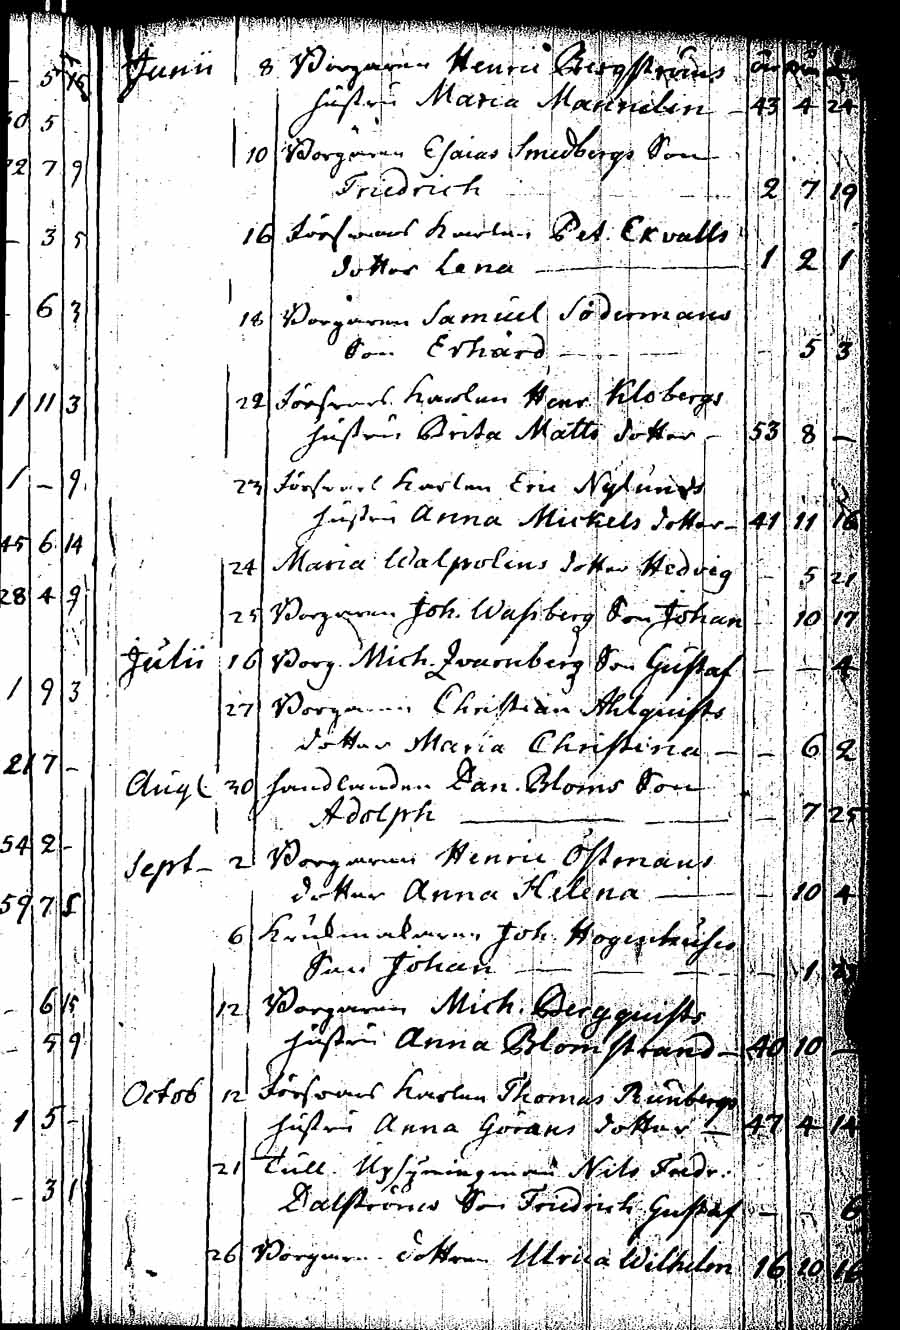 5 15
30 5
22 7 9
- 3 5
- 6 3
1 11 3
1 - 9
45 6 14
28 4 9
1 9 3
21 7 -
54 2 -
59 7 5
- 6 15
- 5 9
1 5 -
- 3 1
Junii 8 Borgaren Henric Bergströms
hustru Maria Mannelin - 43 4 24
10 Borgaren Esaias Smedbergs Son
Friedrich 2 7 19
16 Försvars Karlen Pet. Ekvalls
dotter Lena 1 2 1
18 Borgaren Samuel Södermans
Son Erhard - 5 3
22 Försvars Karlen Henr. Klobergs
hustru Brita Matts dotter - 53 8 -
23 Försvars Karlen Eric Nylunds
hustru Anna Mickels dotter - 41 11 16
24 Maria Walpolins dotter Hedvig - 5 21
25 Borgaren Joh. Wasbergs Son Johan - 10 17
Julii 16 Borg. Mich. Qvarnbergs Son Gustaf - - 4
27 Borgaren Christian Ahlquists
dotter Maria Christina - - 6 2
Aug 30 handlanden Dan. Bloms Son
Adolph - 7 25
Sept - 2 Borgaren Henric Östmans
dotter Anna Helena - 10 4
6 Krukmakaren Joh. Hogenhuses
Son Johan - 1
12 Borgaren Mich. Bergquists
hustru Anna Blomstrand - 40 10 -
Octob 12 Försvars Karlen Thomas Runbergs
hustru Anna Görans dotter - 47 4 14
21 Tull Nils Fredr:
Dalströms Son Friedrich Gustaf - - 6
26 Borgare dottren Ulrica Wilhelm 16 10 16